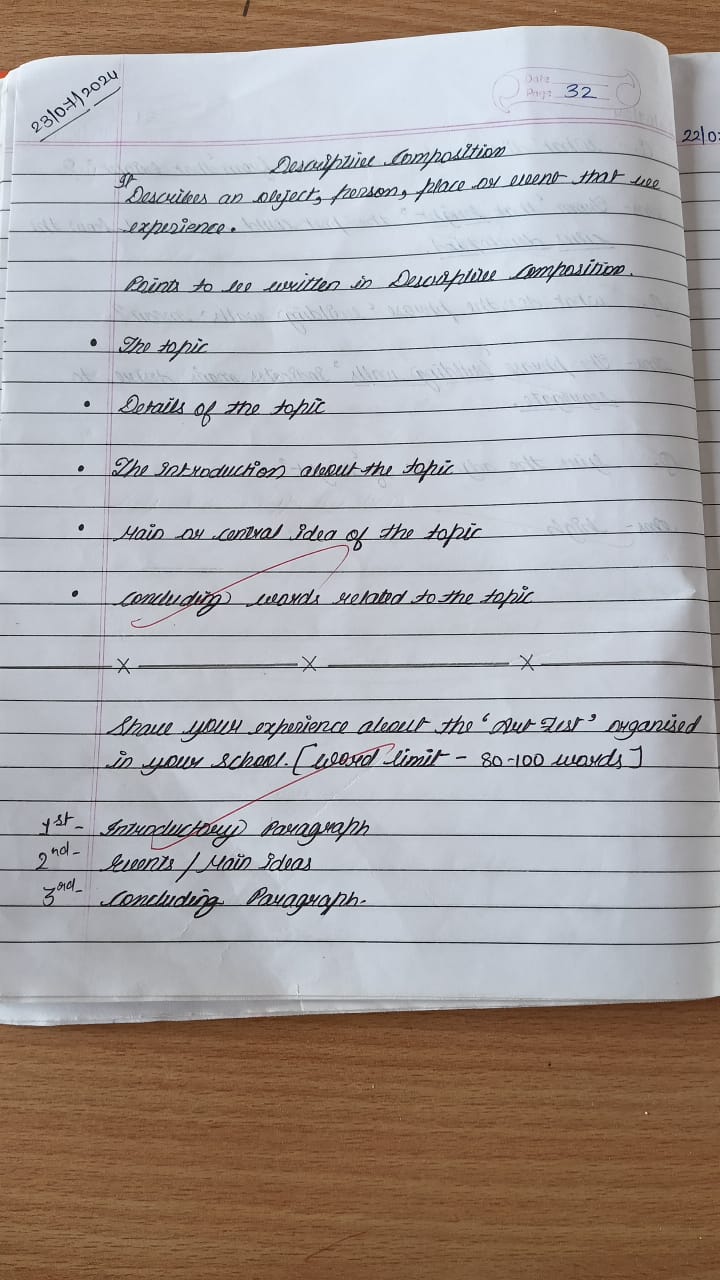 23/07/2024
Date
Page 32
22/0
Descriptive Composition
It
Describes an object, person, place or event that we
experience.
Points to be written in Descriptive Composition.
• The topic
• Details of the topic
• The Introduction about the topic
• Main or central idea of the topic
• Concluding words related to the topic
X X X
Share your experience about the 'Art Fest' organised
in your school. [Word limit - 80-100 words]
1st - Introductory Paragraph
2nd - Events / Main ideas
3rd - Concluding Paragraph.